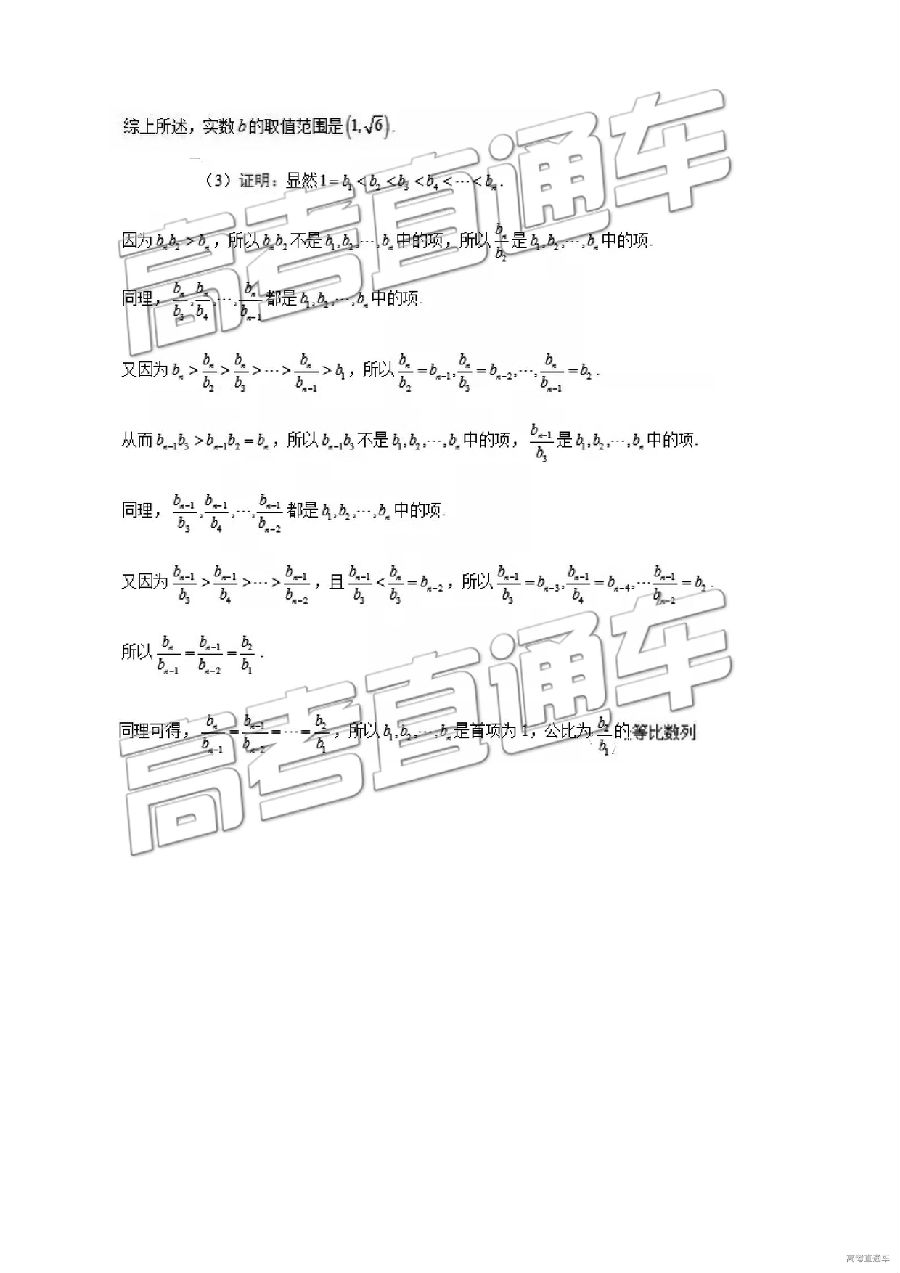 综上所述，实数b的取值范围是(1,√6).
（3）证明：显然1=b₁<b₂<b₃<b₄<⋯<bₙ.
因为bₙb₂>bₙ，所以bₙb₂不是b₁,b₂,⋯,bₙ中的项，所以bₙ/b₂是b₁,b₂,⋯,bₙ中的项.
同理，bₙ/b₃,bₙ/b₄,⋯,bₙ/bₙ₋₁都是b₁,b₂,⋯,bₙ中的项.
又因为bₙ>bₙ/b₂>bₙ/b₃>⋯>bₙ/bₙ₋₁>b₁，所以bₙ/b₂=bₙ₋₁,bₙ/b₃=bₙ₋₂,⋯,bₙ/bₙ₋₁=b₂.
从而bₙ₋₁b₃>bₙ₋₁b₂=bₙ，所以bₙ₋₁b₃不是b₁,b₂,⋯,bₙ中的项，bₙ₋₁/b₃是b₁,b₂,⋯,bₙ中的项.
同理，bₙ₋₁/b₃,bₙ₋₁/b₄,⋯,bₙ₋₁/bₙ₋₂都是b₁,b₂,⋯,bₙ中的项.
又因为bₙ₋₁/b₃>bₙ₋₁/b₄>⋯>bₙ₋₁/bₙ₋₂，且bₙ₋₁/b₃<bₙ/b₃=bₙ₋₂，所以bₙ₋₁/b₃=bₙ₋₃,bₙ₋₁/b₄=bₙ₋₄,⋯bₙ₋₁/bₙ₋₂=b₂.
所以bₙ/bₙ₋₁=bₙ₋₁/bₙ₋₂=b₂/b₁.
同理可得，bₙ/bₙ₋₁=bₙ₋₁/bₙ₋₂=⋯=b₂/b₁，所以b₁,b₂,⋯,bₙ是首项为1，公比为b₂/b₁的等比数列
高考直通车
高考直通车
高考直通车